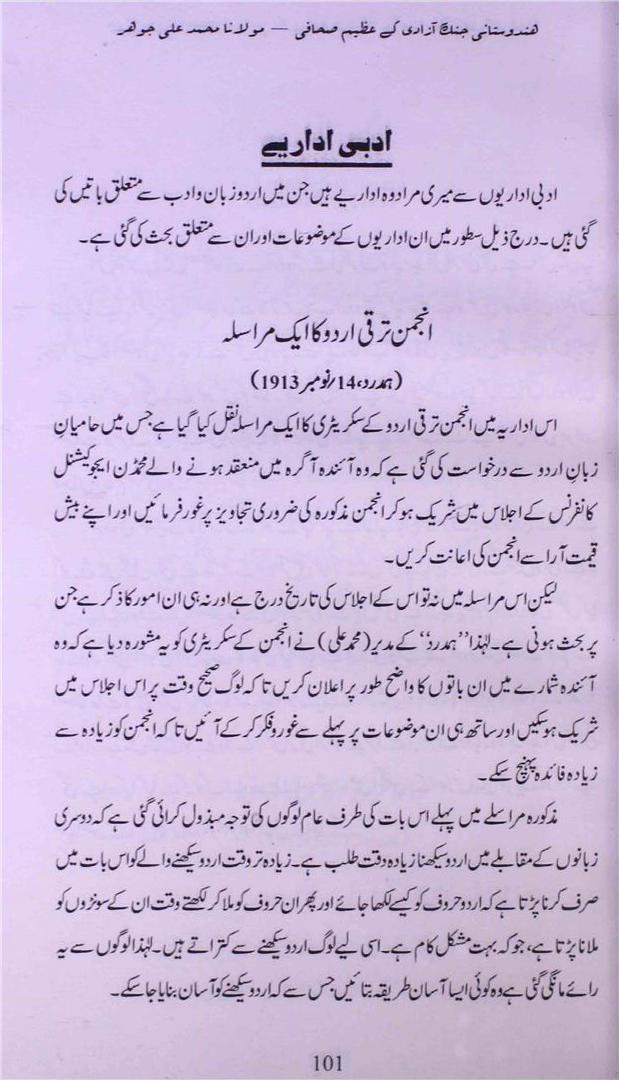 ھندوستانی جنگ آزادی کے عظیم صحافی — مولانا محمد علی جوھر
ادبی اداریے
ادبی اداریوں سے میری مراد وہ اداریے ہیں جن میں اردو زبان و ادب سے متعلق باتیں کی
گئی ہیں۔ درج ذیل سطور میں ان اداریوں کے موضوعات اور ان سے متعلق بحث کی گئی ہے۔
انجمن ترقی اردو کا ایک مراسلہ
(ہمدرد، 14/نومبر 1913)
اس اداریہ میں انجمن ترقی اردو کے سکریٹری کا ایک مراسلہ نقل کیا گیا ہے جس میں حامیانِ
زبانِ اردو سے درخواست کی گئی ہے کہ وہ آئندہ آگرہ میں منعقد ہونے والے محمڈن ایجوکیشنل
کانفرنس کے اجلاس میں شریک ہوکر انجمن مذکورہ کی ضروری تجاویز پر غور فرمائیں اور اپنے بیش
قیمت آرا سے انجمن کی اعانت کریں۔
لیکن اس مراسلہ میں نہ تو اس کے اجلاس کی تاریخ درج ہے اور نہ ہی ان امور کا ذکر ہے جن
پر بحث ہونی ہے۔ لہٰذا ''ہمدرد'' کے مدیر (محمد علی) نے انجمن کے سکریٹری کو یہ مشورہ دیا ہے کہ وہ
آئندہ شمارے میں ان باتوں کا واضح طور پر اعلان کریں تاکہ لوگ صحیح وقت پر اس اجلاس میں
شریک ہوسکیں اور ساتھ ہی ان موضوعات پر پہلے سے غور و فکر کرکے آئیں تاکہ انجمن کو زیادہ سے
زیادہ فائدہ پہنچ سکے۔
مذکورہ مراسلے میں پہلے اس بات کی طرف عام لوگوں کی توجہ مبذول کرائی گئی ہے کہ دوسری
زبانوں کے مقابلے میں اردو سیکھنا زیادہ دقت طلب ہے۔ زیادہ تر وقت اردو سیکھنے والے کو اس بات میں
صرف کرنا پڑتا ہے کہ اردو حروف کو کیسے لکھا جائے اور پھر ان حروف کو ملا کر لکھتے وقت ان کے سونڑوں کو
ملانا پڑتا ہے، جو کہ بہت مشکل کام ہے۔ اسی لیے لوگ اردو سیکھنے سے کتراتے ہیں۔ لہٰذا لوگوں سے یہ
رائے مانگی گئی ہے وہ کوئی ایسا آسان طریقہ بتائیں جس سے کہ اردو سیکھنے کو آسان بنایا جاسکے۔
101